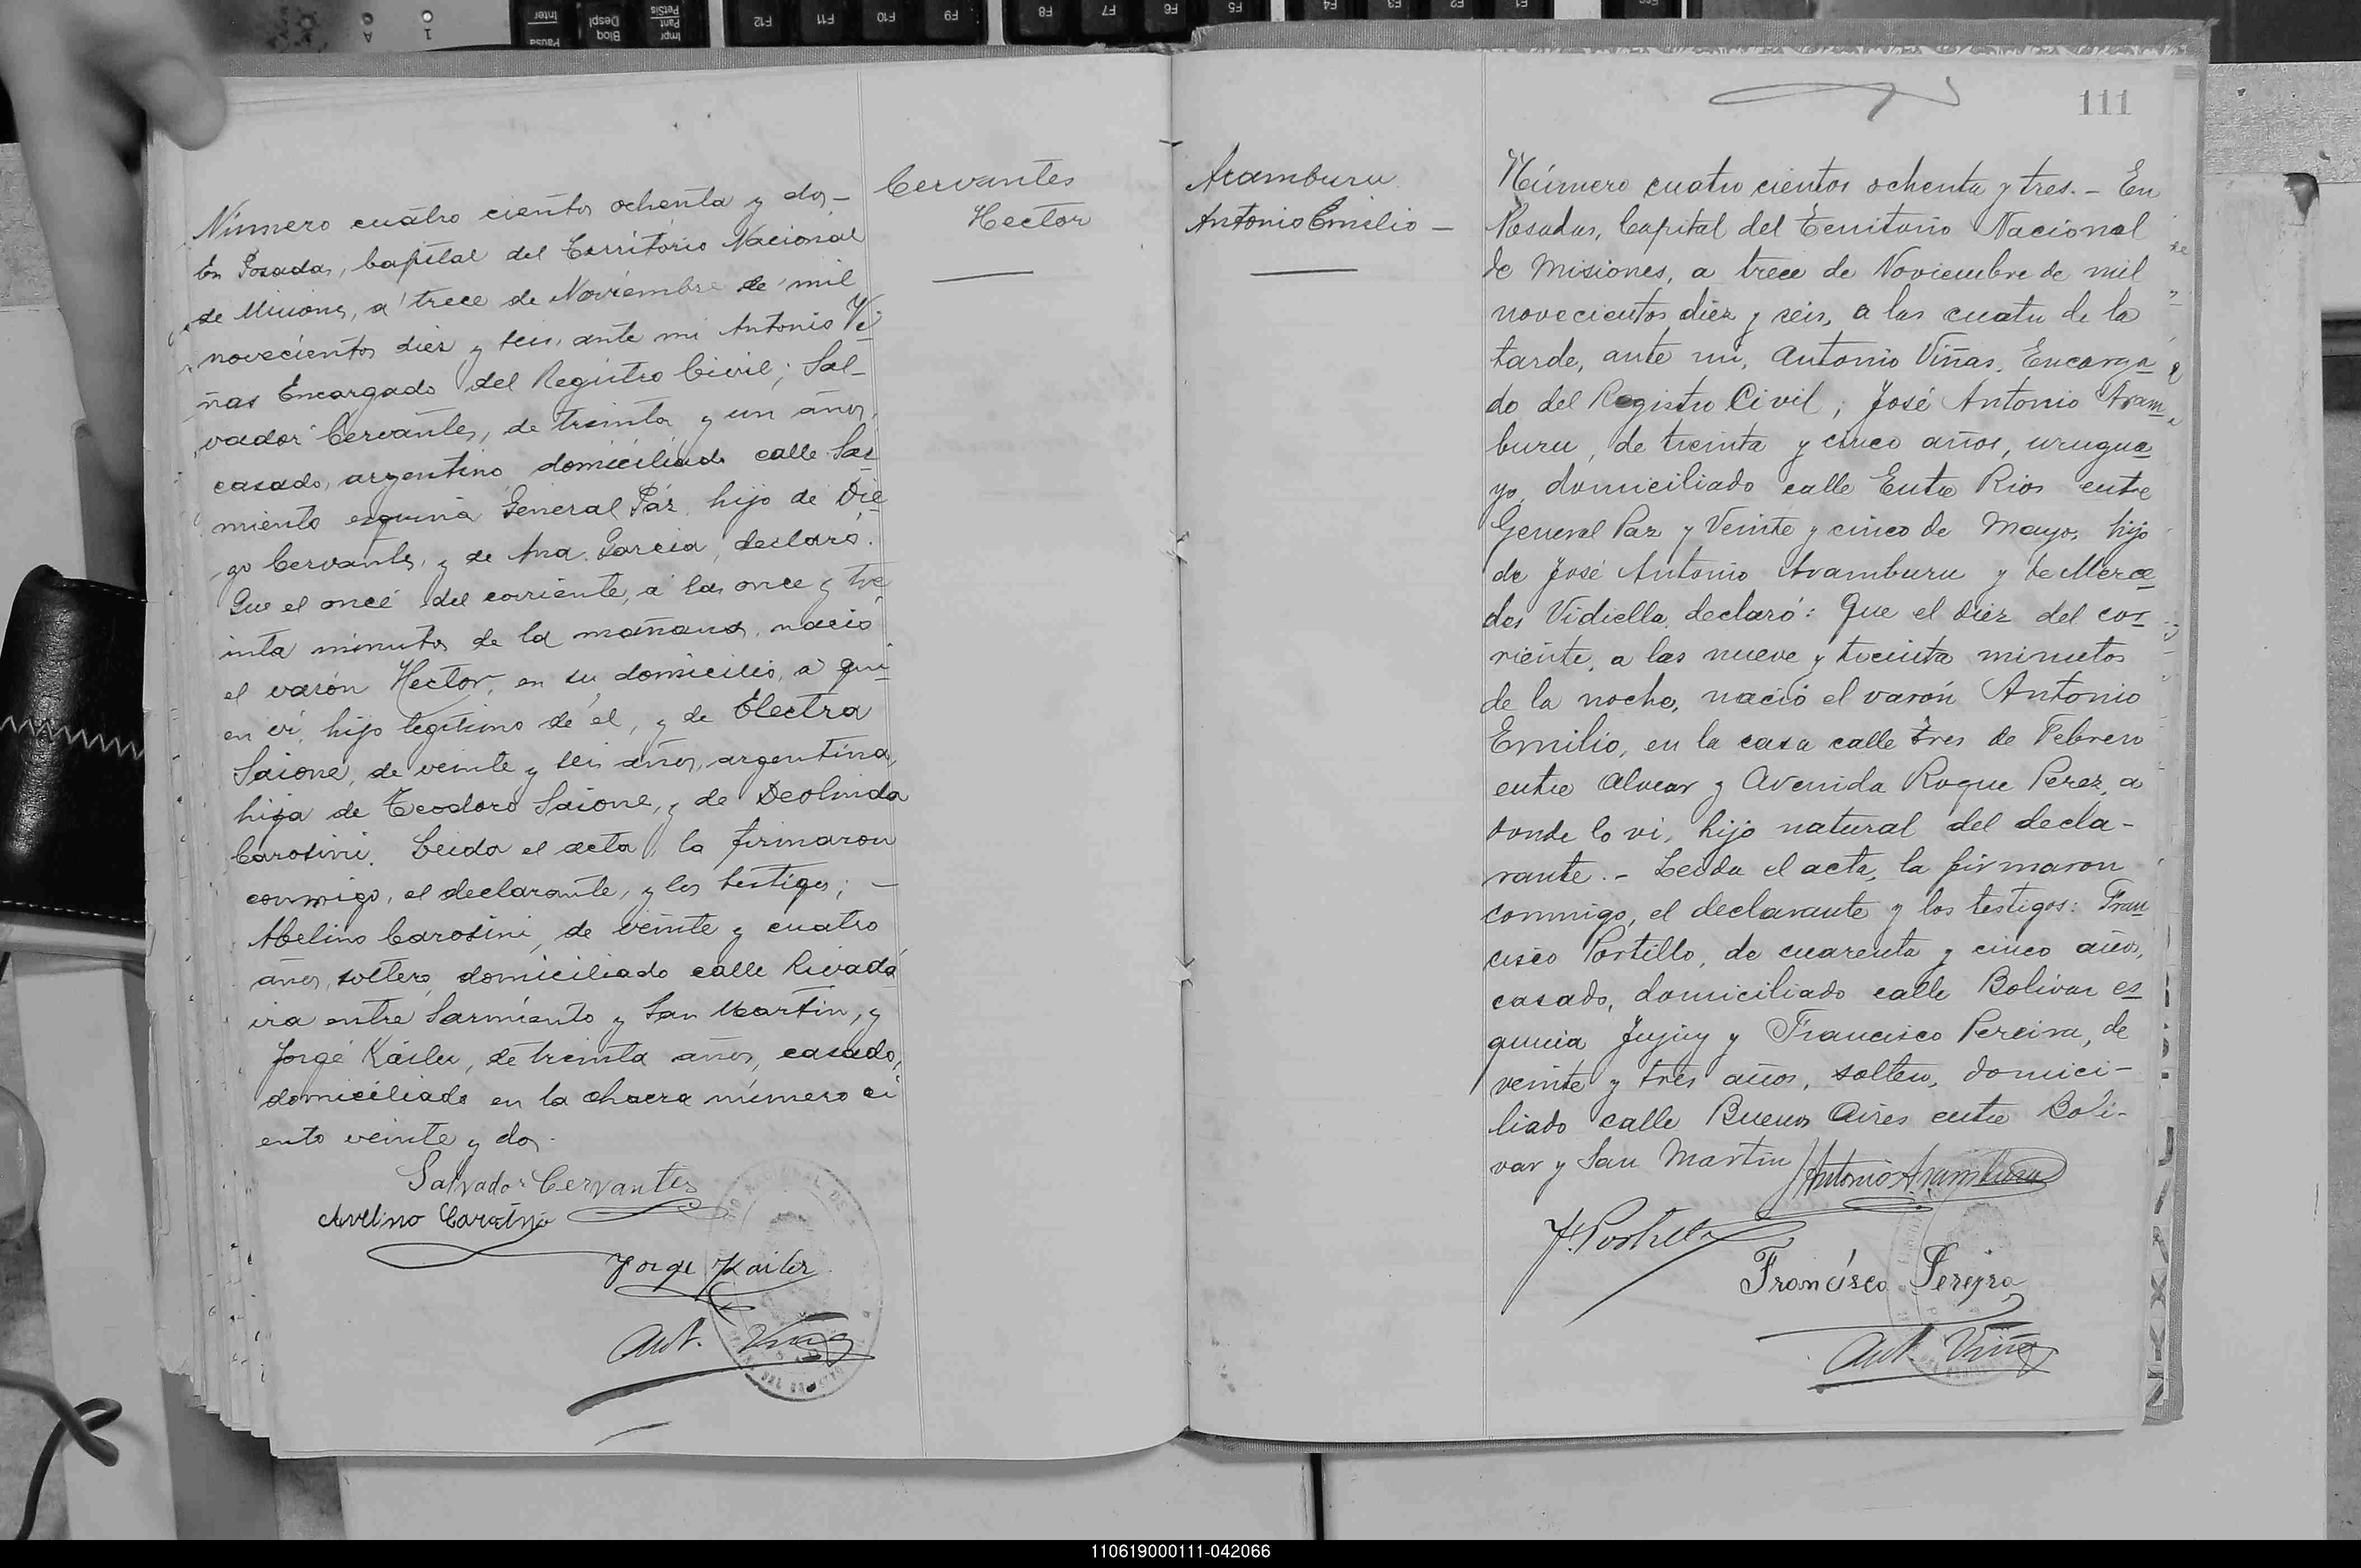 Número cuatro cientos ochenta y dos-
En Posadas, Capital del Territorio Nacional
de Misiones, a trece de Noviembre de mil
novecientos diez y seis, ante mi Antonio Vi
ñas Encargado del Registro Civil; Sal-
vador Cervantes, de treinta y un años,
casado, argentino domiciliado calle Sar
miento esquina General Páz, hijo de Die
go Cervantes, y de Ana Garcia, declaró.
Que el once del corriente, a las once y tre
inta minutos de la mañana, nació
el varón Hector, en su domicilio, a qui
en vi, hijo legitimo de el, y de Electra
Saione, de veinte y seis años, argentina,
hija de Teodoro Saione, y de Deolinda
Carosini. Leida el acta, la firmaron
conmigo, el declarante, y los testigos; -
Abelino Carosini, de veinte y cuatro
años, soltero, domiciliado calle Rivada
via entre Sarmiento y San Martin, y
Jorge Káiler, de treinta años, casado,
domiciliado en la chacra número ci
ento veinte y dos.
Salvador Cervantes
Avelino Carosini
Jorge Kailer
Ant. Viñas
Cervantes
Hector
Aramburu
Antonio Emilio -
111
Número cuatro cientos ochenta y tres. - En
Posadas, Capital del Territorio Nacional
de Misiones, a trece de Noviembre de mil
novecientos diez y seis, a las cuatro de la
tarde, ante mi, Antonio Viñas, Encarga
do del Registro Civil; José Antonio Aram
buru, de treinta y cinco años, urugua
yo, domiciliado calle Entre Rios entre
General Paz y Veinte y cinco de Mayo, hijo
de José Antonio Aramburu y de Merce
des Vidiella, declaró: Que el diez del cor
riente, a las nueve y treinta minutos
de la noche, nació el varón Antonio
Emilio, en la casa calle tres de Febrero
entre Alvear y Avenida Roque Perez, a
donde lo vi, hijo natural del decla-
rante. - Leida el acta, la firmaron
conmigo, el declarante y los testigos: Fran
cisco Portillo, de cuarenta y cinco años,
casado, domiciliado calle Bolivar es
quina Jujuy y Francisco Pereira, de
veinte y tres años, soltero, domici-
liado calle Buenos Aires entre Boli-
var y San Martin
J Antonio Aramburu
F. Portillo
Francisco Pereyra
Ant. Viñas
110619000111-042066